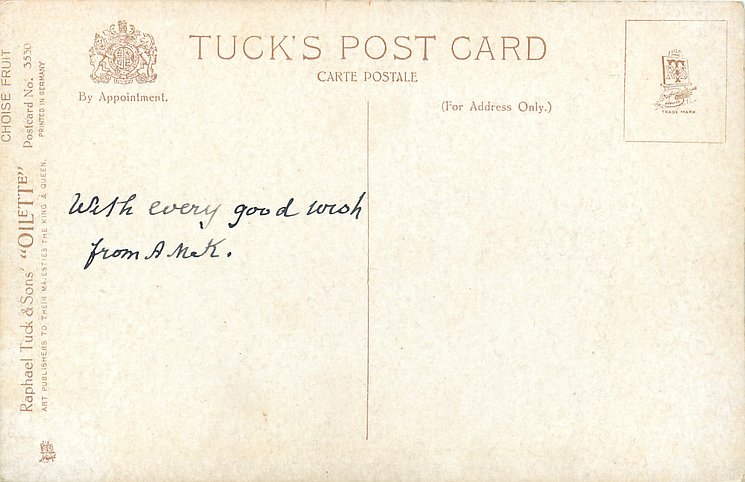 TUCK'S POST CARD
CARTE POSTALE
By Appointment.
(For Address Only.)
TRADE MARK
With every good wish
from A McK.
CHOISE FRUIT
Postcard No. 3530
PRINTED IN GERMANY
Raphael Tuck & Sons' "OILETTE"
ART PUBLISHERS TO THEIR MAJESTIES THE KING & QUEEN.